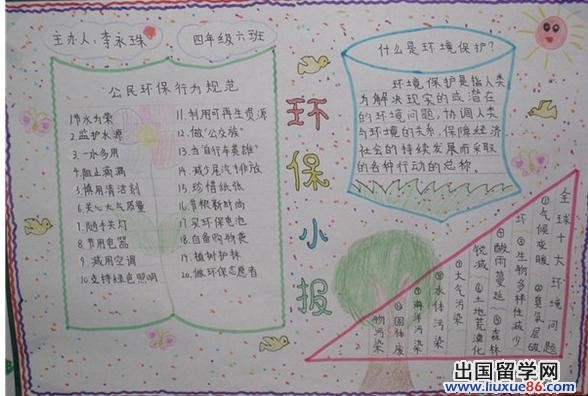 主办人:李永珠
四年级六班
公民环保行为规范
1.节水为荣
2.监护水源
3.一水多用
4.阻止滴漏
5.慎用清洁剂
6.关心大气质量
7.随手关灯
8.节用电器
9.减用空调
10.支持绿色照明
11.利用可再生资源
12.做“公交族”
13.当“自行车英雄”
14.减少尾气排放
15.珍惜纸张
16.节粮新时尚
17.买环保电池
18.自备购物袋
19.植树护林
20.做环保志愿者
环保小报
什么是环境保护?
环境保护是指人类
为解决现实的或潜在
的环境问题,协调人类
与环境的关系,保障经济
社会的持续发展而采取
的各种行动的总称。
全球十大环境问题
①气候变暖 ②臭氧层破
坏 ③生物多样性减少
④酸雨蔓延 ⑤森林
锐减 ⑥土地荒漠化
⑦大气污染
⑧水体污染
⑨海洋污染
⑩固体废
物污染
出国留学网
www.liuxue86.com